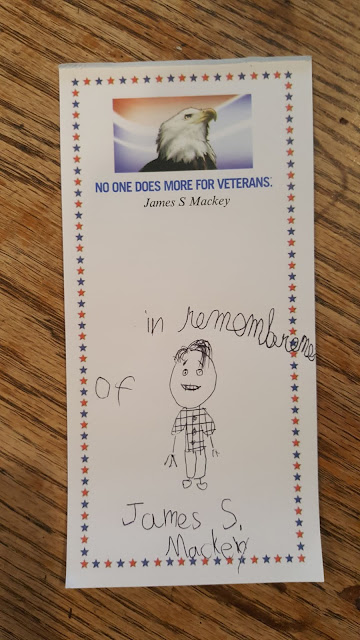 NO ONE DOES MORE FOR VETERANS.
James S Mackey
in remembrance
of
James S.
Mackey